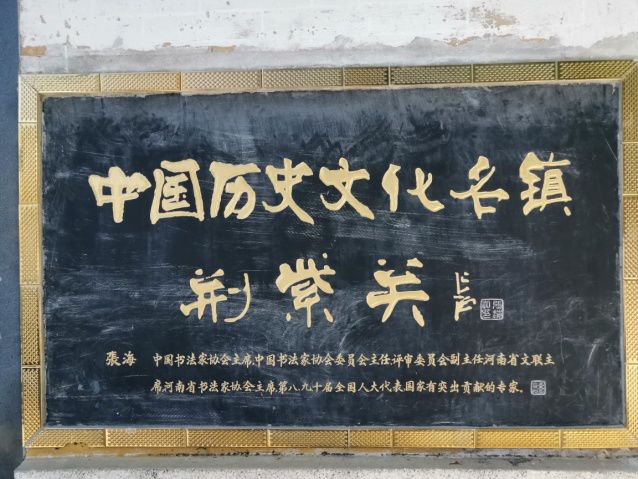 中国历史文化名镇
荆紫关
張海 中国书法家协会主席中国书法家协会委员会主任评审委员会副主任河南省文联主
席河南省书法家协会主席第八九十届全国人大代表国家有突出贡献的专家。